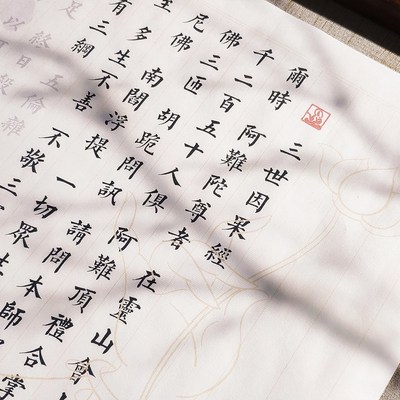 三世因果經
爾時阿難陀尊者在靈山會
千二百五十人俱阿難頂禮合掌
佛三匝胡跪問訊請問本師
尼佛南閻浮提一切眾生
至多生不善不敬三
有三綱五倫雜
足終日殺
以